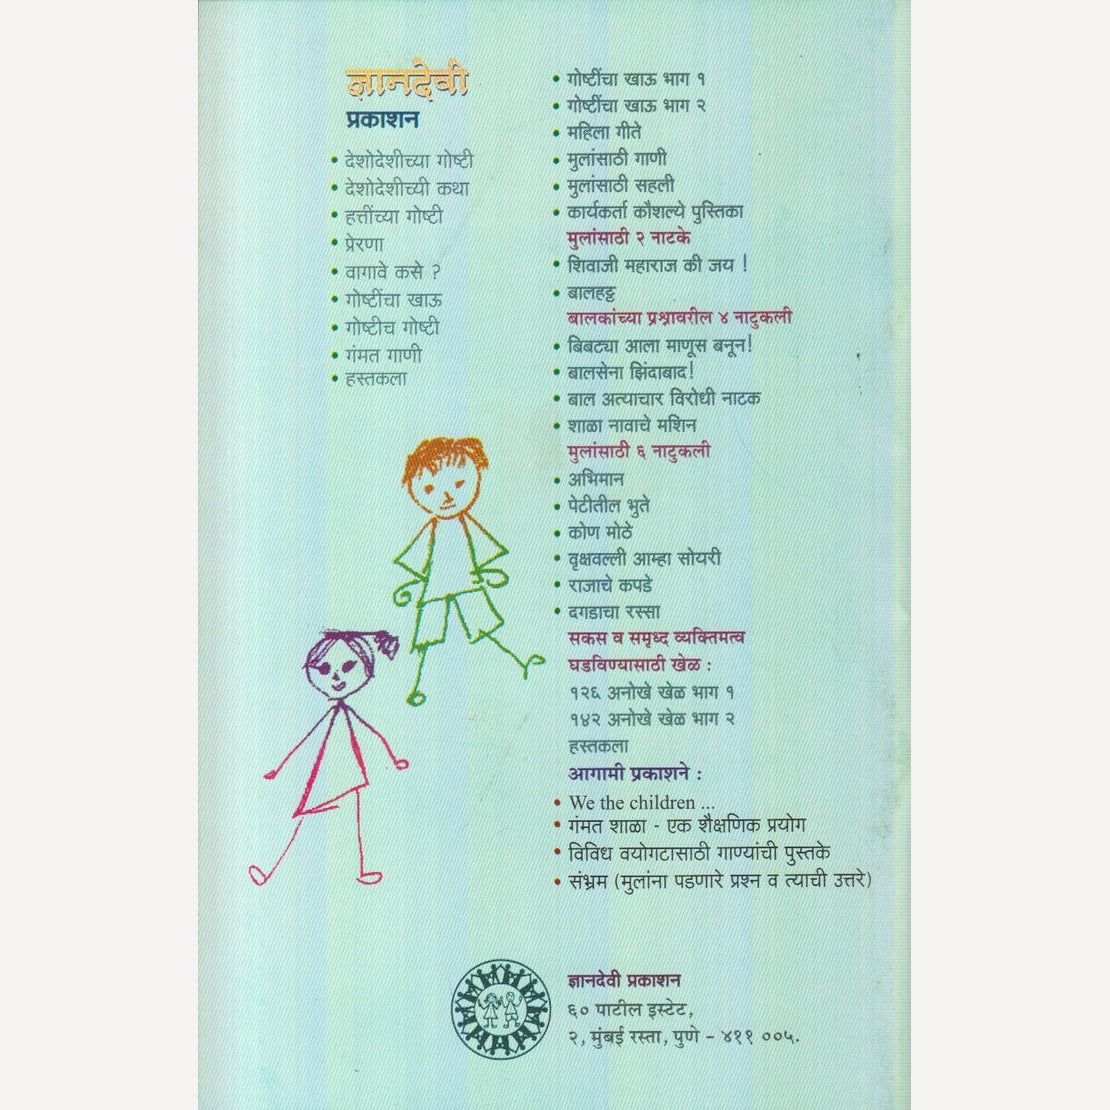 ज्ञानदेवी
प्रकाशन
• देशोदेशीच्या गोष्टी
• देशोदेशीच्यी कथा
• हत्तींच्या गोष्टी
• प्रेरणा
• वागावे कसे ?
• गोष्टींचा खाऊ
• गोष्टीच गोष्टी
• गंमत गाणी
• हस्तकला
• गोष्टींचा खाऊ भाग १
• गोष्टींचा खाऊ भाग २
• महिला गीते
• मुलांसाठी गाणी
• मुलांसाठी सहली
• कार्यकर्ता कौशल्ये पुस्तिका
मुलांसाठी २ नाटके
• शिवाजी महाराज की जय !
• बालहट्ट
बालकांच्या प्रश्नावरील ४ नाटुकली
• बिबट्या आला माणूस बनून!
• बालसेना झिंदाबाद!
• बाल अत्याचार विरोधी नाटक
• शाळा नावाचे मशिन
मुलांसाठी ६ नाटुकली
• अभिमान
• पेटीतील भुते
• कोण मोठे
• वृक्षवल्ली आम्हा सोयरी
• राजाचे कपडे
• दगडाचा रस्सा
सकस व समृध्द व्यक्तिमत्व
घडविण्यासाठी खेळ :
१२६ अनोखे खेळ भाग १
१४२ अनोखे खेळ भाग २
हस्तकला
आगामी प्रकाशने :
• We the children ...
• गंमत शाळा - एक शैक्षणिक प्रयोग
• विविध वयोगटासाठी गाण्यांची पुस्तके
• संभ्रम (मुलांना पडणारे प्रश्न व त्याची उत्तरे)
ज्ञानदेवी प्रकाशन
६० पाटील इस्टेट,
२, मुंबई रस्ता, पुणे - ४११ ००५.